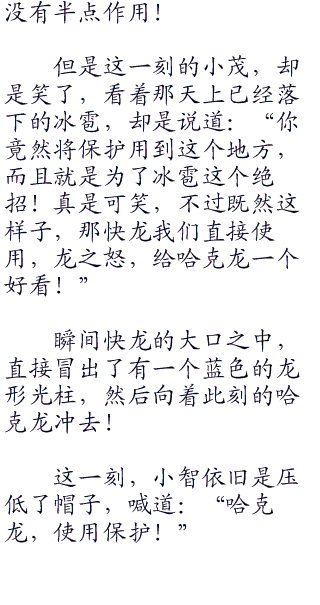 没有半点作用！
但是这一刻的小茂，却
是笑了，看着那天上已经落
下的冰雹，却是说道：“你
竟然将保护用到这个地方，
而且就是为了冰雹这个绝
招！真是可笑，不过既然这
样子，那快龙我们直接使
用，龙之怒，给哈克龙一个
好看！”
瞬间快龙的大口之中，
直接冒出了有一个蓝色的龙
形光柱，然后向着此刻的哈
克龙冲去！
这一刻，小智依旧是压
低了帽子，喊道：“哈克
龙，使用保护！”